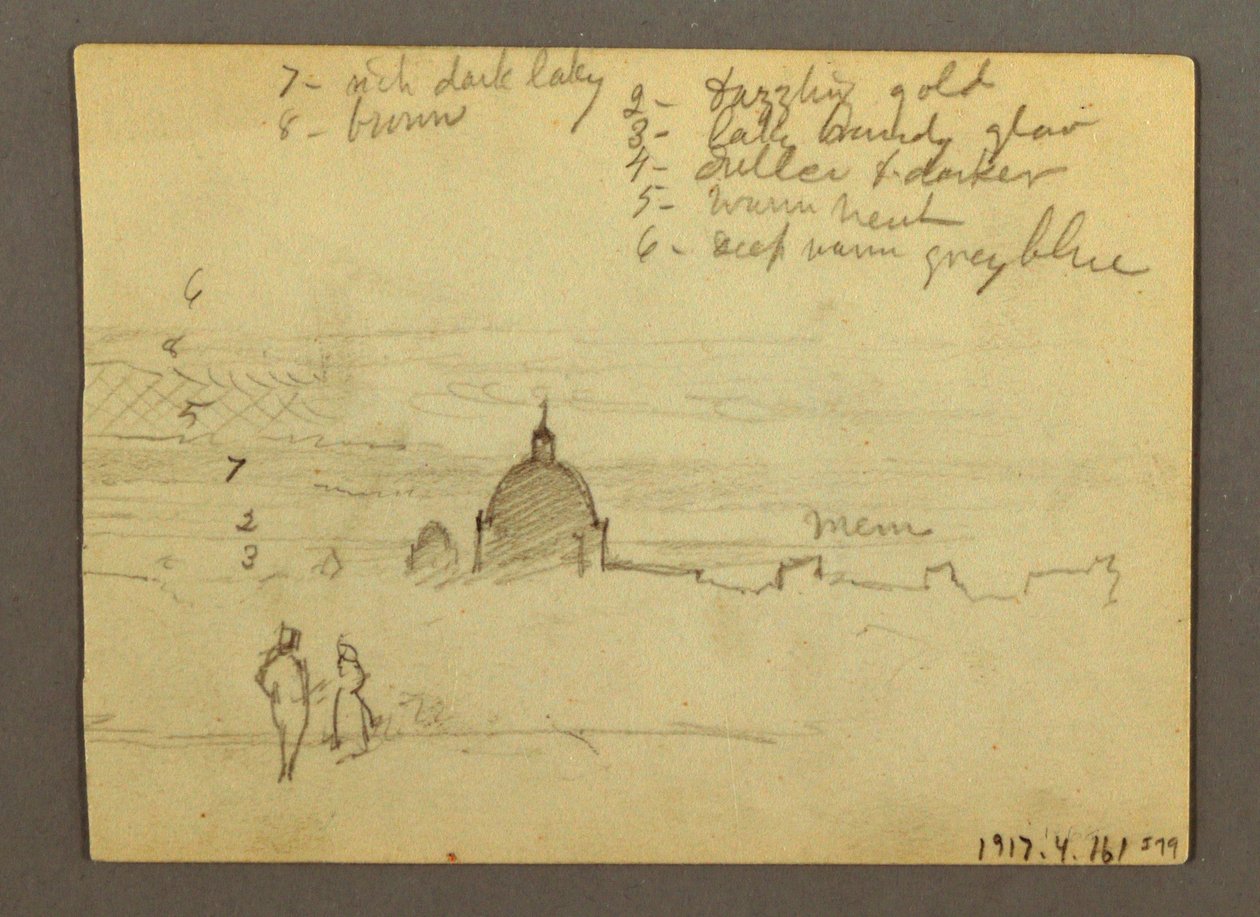 7 - rich dark laky
8 - brown
2 - dazzling gold
3 - laky brandy glow
4 - duller & darker
5 - warm neut
6 - deep warm grey blue
6
8
5
7
2
3
mem
1917.4.161